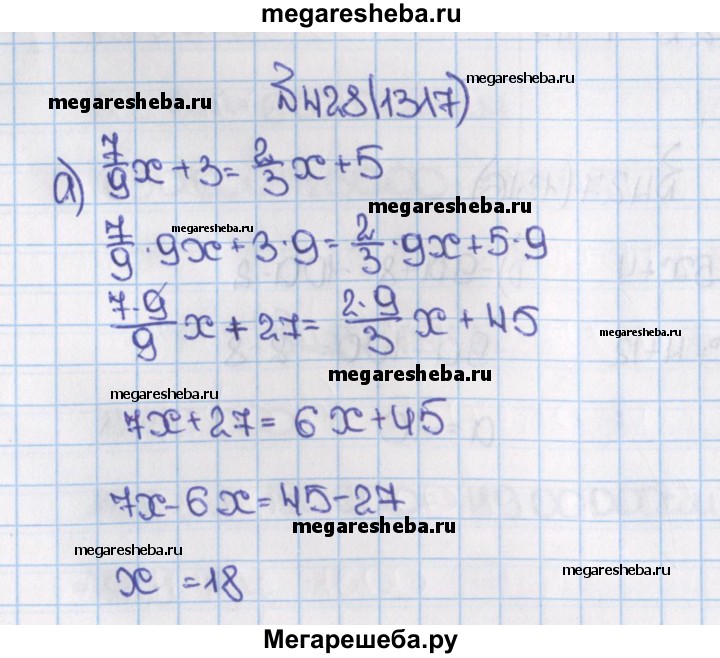 megaresheba.ru
№428(1317)
megaresheba.ru
megaresheba.ru
а) 7/9 x + 3 = 2/3 x + 5
megaresheba.ru
megaresheba.ru
7/9 · 9x + 3 · 9 = 2/3 · 9x + 5 · 9
7·9/9 x + 27 = 2·9/3 x + 45
megaresheba.ru
megaresheba.ru
megaresheba.ru
7x + 27 = 6x + 45
7x - 6x = 45 - 27
megaresheba.ru
megaresheba.ru
megaresheba.ru
x = 18
Мегарешеба.ру